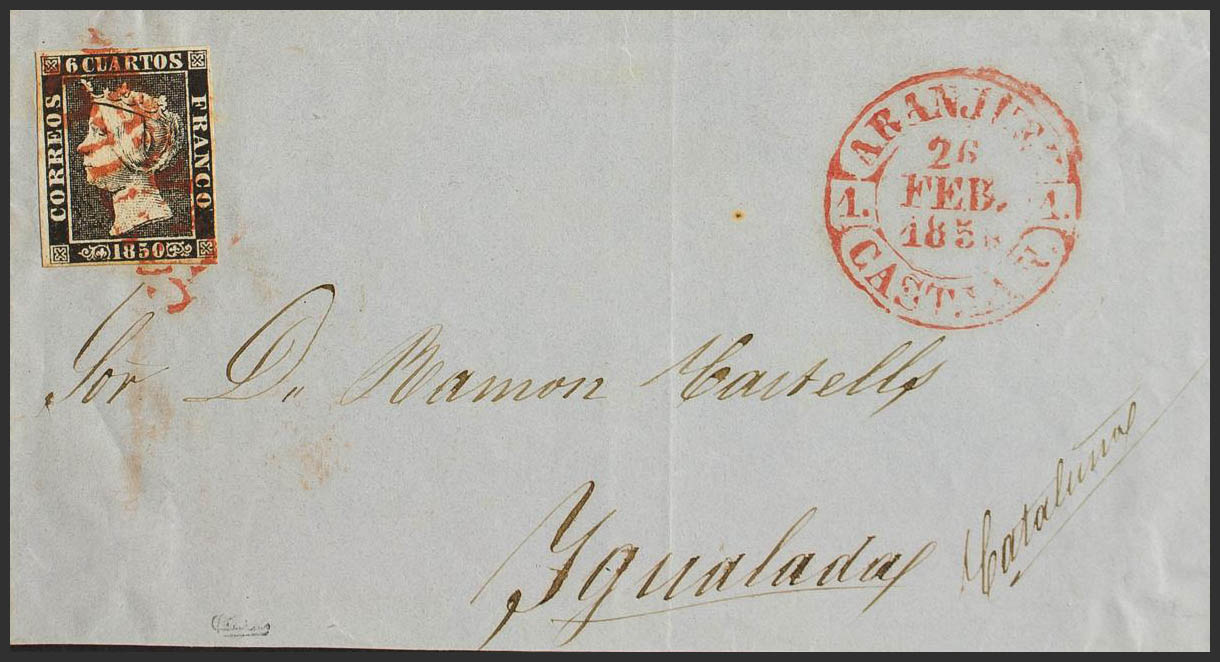 6 CUARTOS
CORREOS
FRANCO
1850
ARANJUEZ
26
FEB.
185
1. 1.
CAST.LA N.
Sor. Dn. Ramon Castells
Ygualada
Cataluña